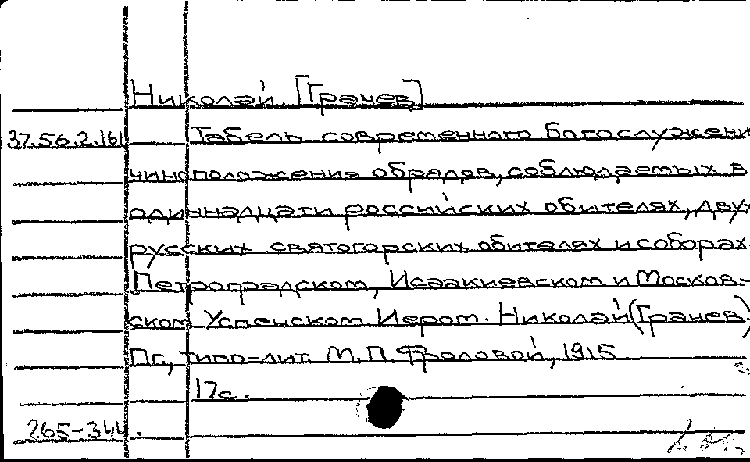 Николай [Грачев]
37.56.2.161 Табель современного богослужени
чиноположения обрядов, соблюдаемых в
одиннадцати российских обителях, двух
русских святогорских обителях и соборах:
Петроградском, Исаакиевском и Москов-
ском Успенском. Иером. Николай (Грачев)
Пг., типо-лит. М.П. Фроловой, 1915
17с.
265-344.